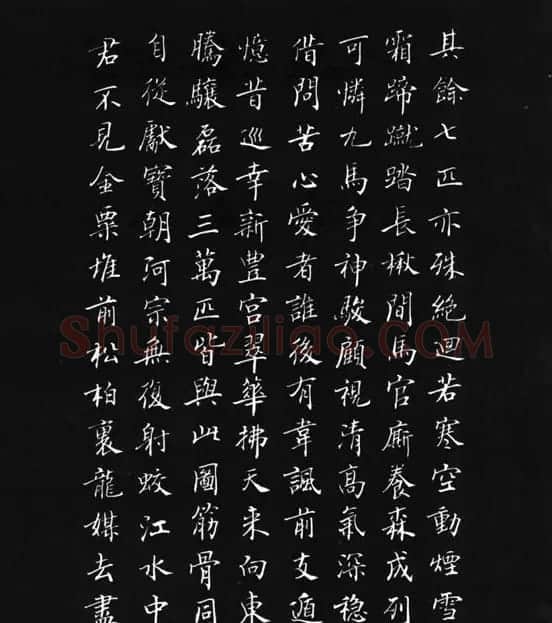 其餘七匹亦殊絕迥若寒空動煙雪
霜蹄蹴踏長楸間馬官廝養森成列
可憐九馬爭神駿顧視清高氣深穩
借問苦心愛者誰後有韋諷前支遁
憶昔巡幸新豊宮翠華拂天来向東
騰驤磊落三萬匹皆與此圖筋骨同
自從獻寶朝河宗無復射蛟江水中
君不見金粟堆前松柏裏龍媒去盡
Shufaziliao.COM